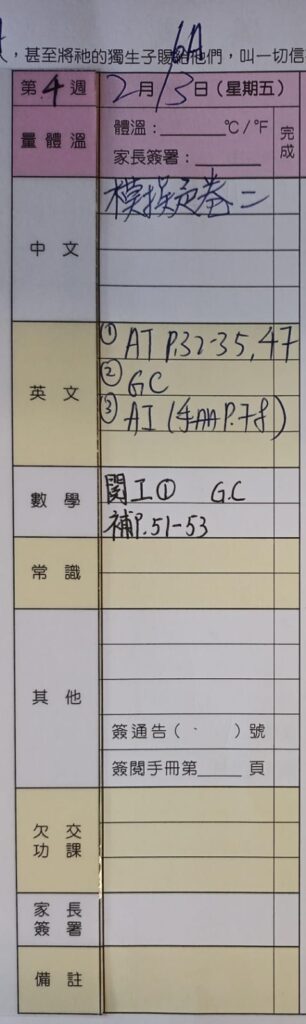 ，甚至將祂的獨生子賜給他們，叫一切信
6A
第 4 週 2月13日（星期五）
量體溫 體溫：______°C/°F 完成
家長簽署：______
中文 模擬卷二
英文 ① AT P.32-35, 47
② GC
③ AI (手冊P.78)
數學 閱工① G.C
補P.51-53
常識
其他
簽通告（ ）號
簽閱手冊第____頁
欠交功課
家長簽署
備註